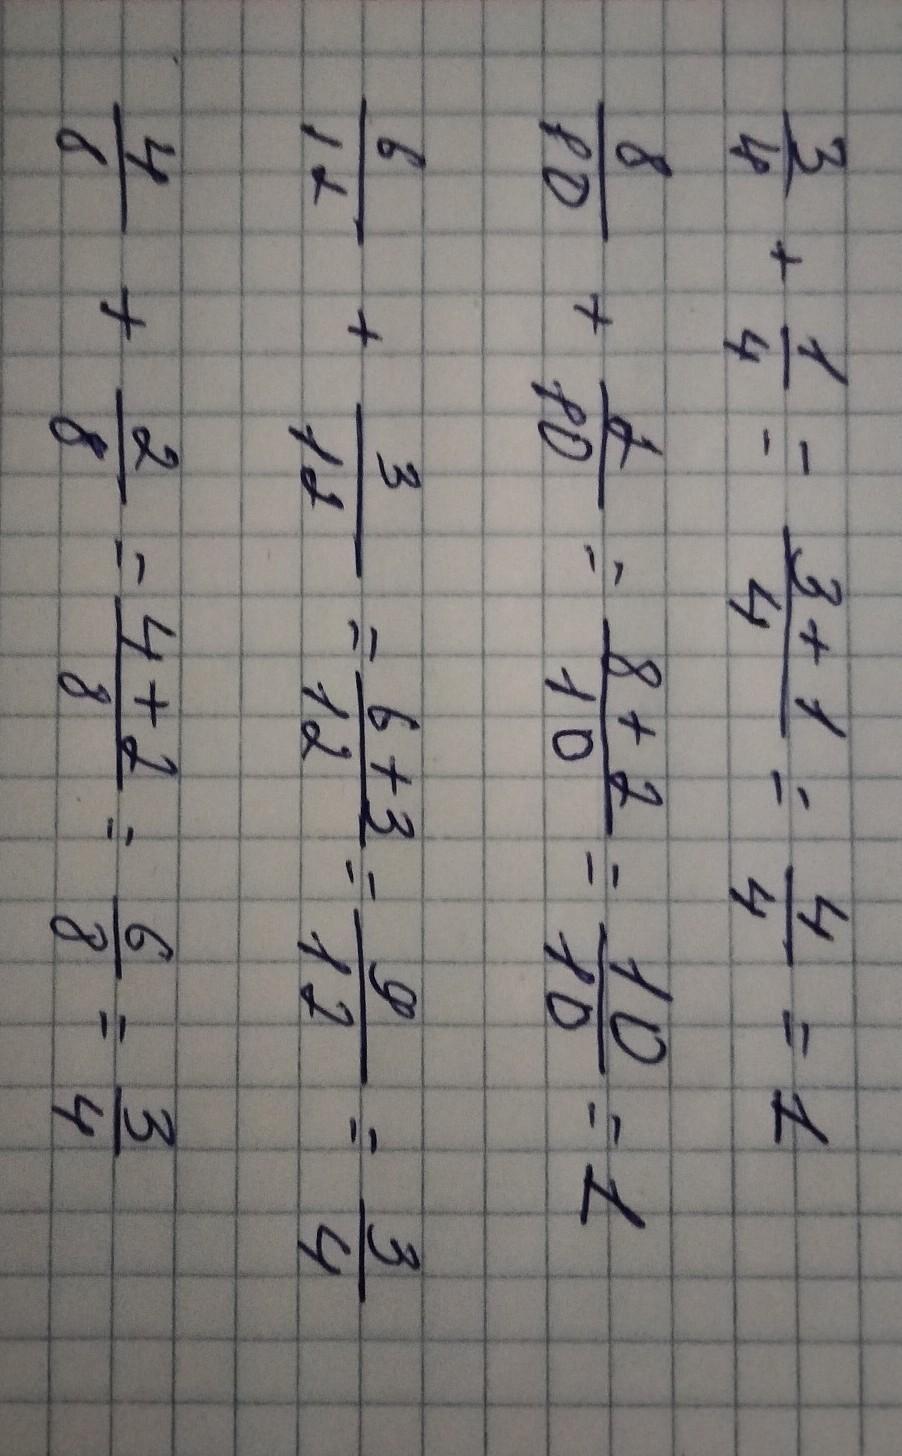 3/4 + 1/4 = (3+1)/4 = 4/4 = 1
8/10 + 2/10 = (8+2)/10 = 10/10 = 1
6/12 + 3/12 = (6+3)/12 = 9/12 = 3/4
4/8 + 2/8 = (4+2)/8 = 6/8 = 3/4